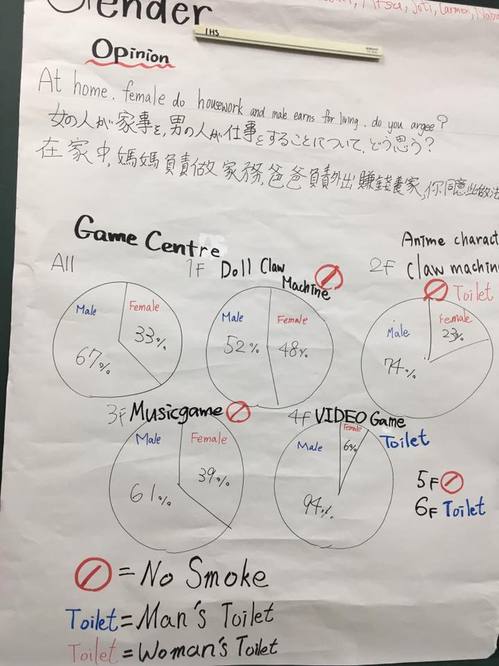 Gender
Mitsu, Joti, Carmen,
IHS
Opinion
At home, female do housework and male earns for living. do you argee?
女の人が家事を,男の人が仕事をすることについて、どう思う?
在家中,媽媽負責做家務,爸爸負責外出賺錢養家,你同意此做法
Game Centre
All
Male
Female
67%
33%
1F Doll Claw
Machine
Male
Female
52%
48%
Anime charact
2F Claw machin
Toilet
Male
Female
74%
23%
3F Musicgame
Male
Female
61%
39%
4F VIDEO Game
Toilet
Male
Female
94%
6%
5F
6F Toilet
= No Smoke
Toilet = Man's Toilet
Toilet = Woman's Toilet